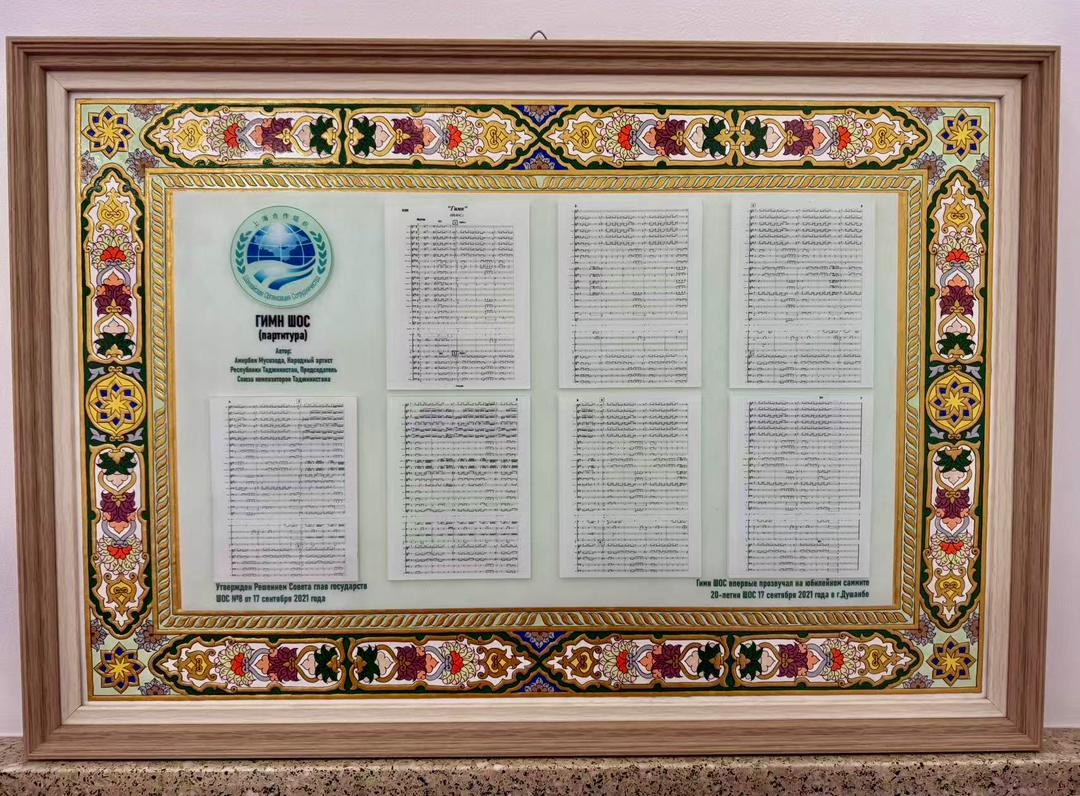 上海合作组织
Шанхайская Организация Сотрудничества
ГИМН ШОС
(партитура)
Автор:
Амирбек Мусозода, Народный артист
Республики Таджикистан, Председатель
Союза композиторов Таджикистана
"Гимн"
(ШОС)
Утвержден Решением Совета глав государств
ШОС №8 от 17 сентября 2021 года
Гимн ШОС впервые прозвучал на юбилейном саммите
20-летия ШОС 17 сентября 2021 года в г.Душанбе